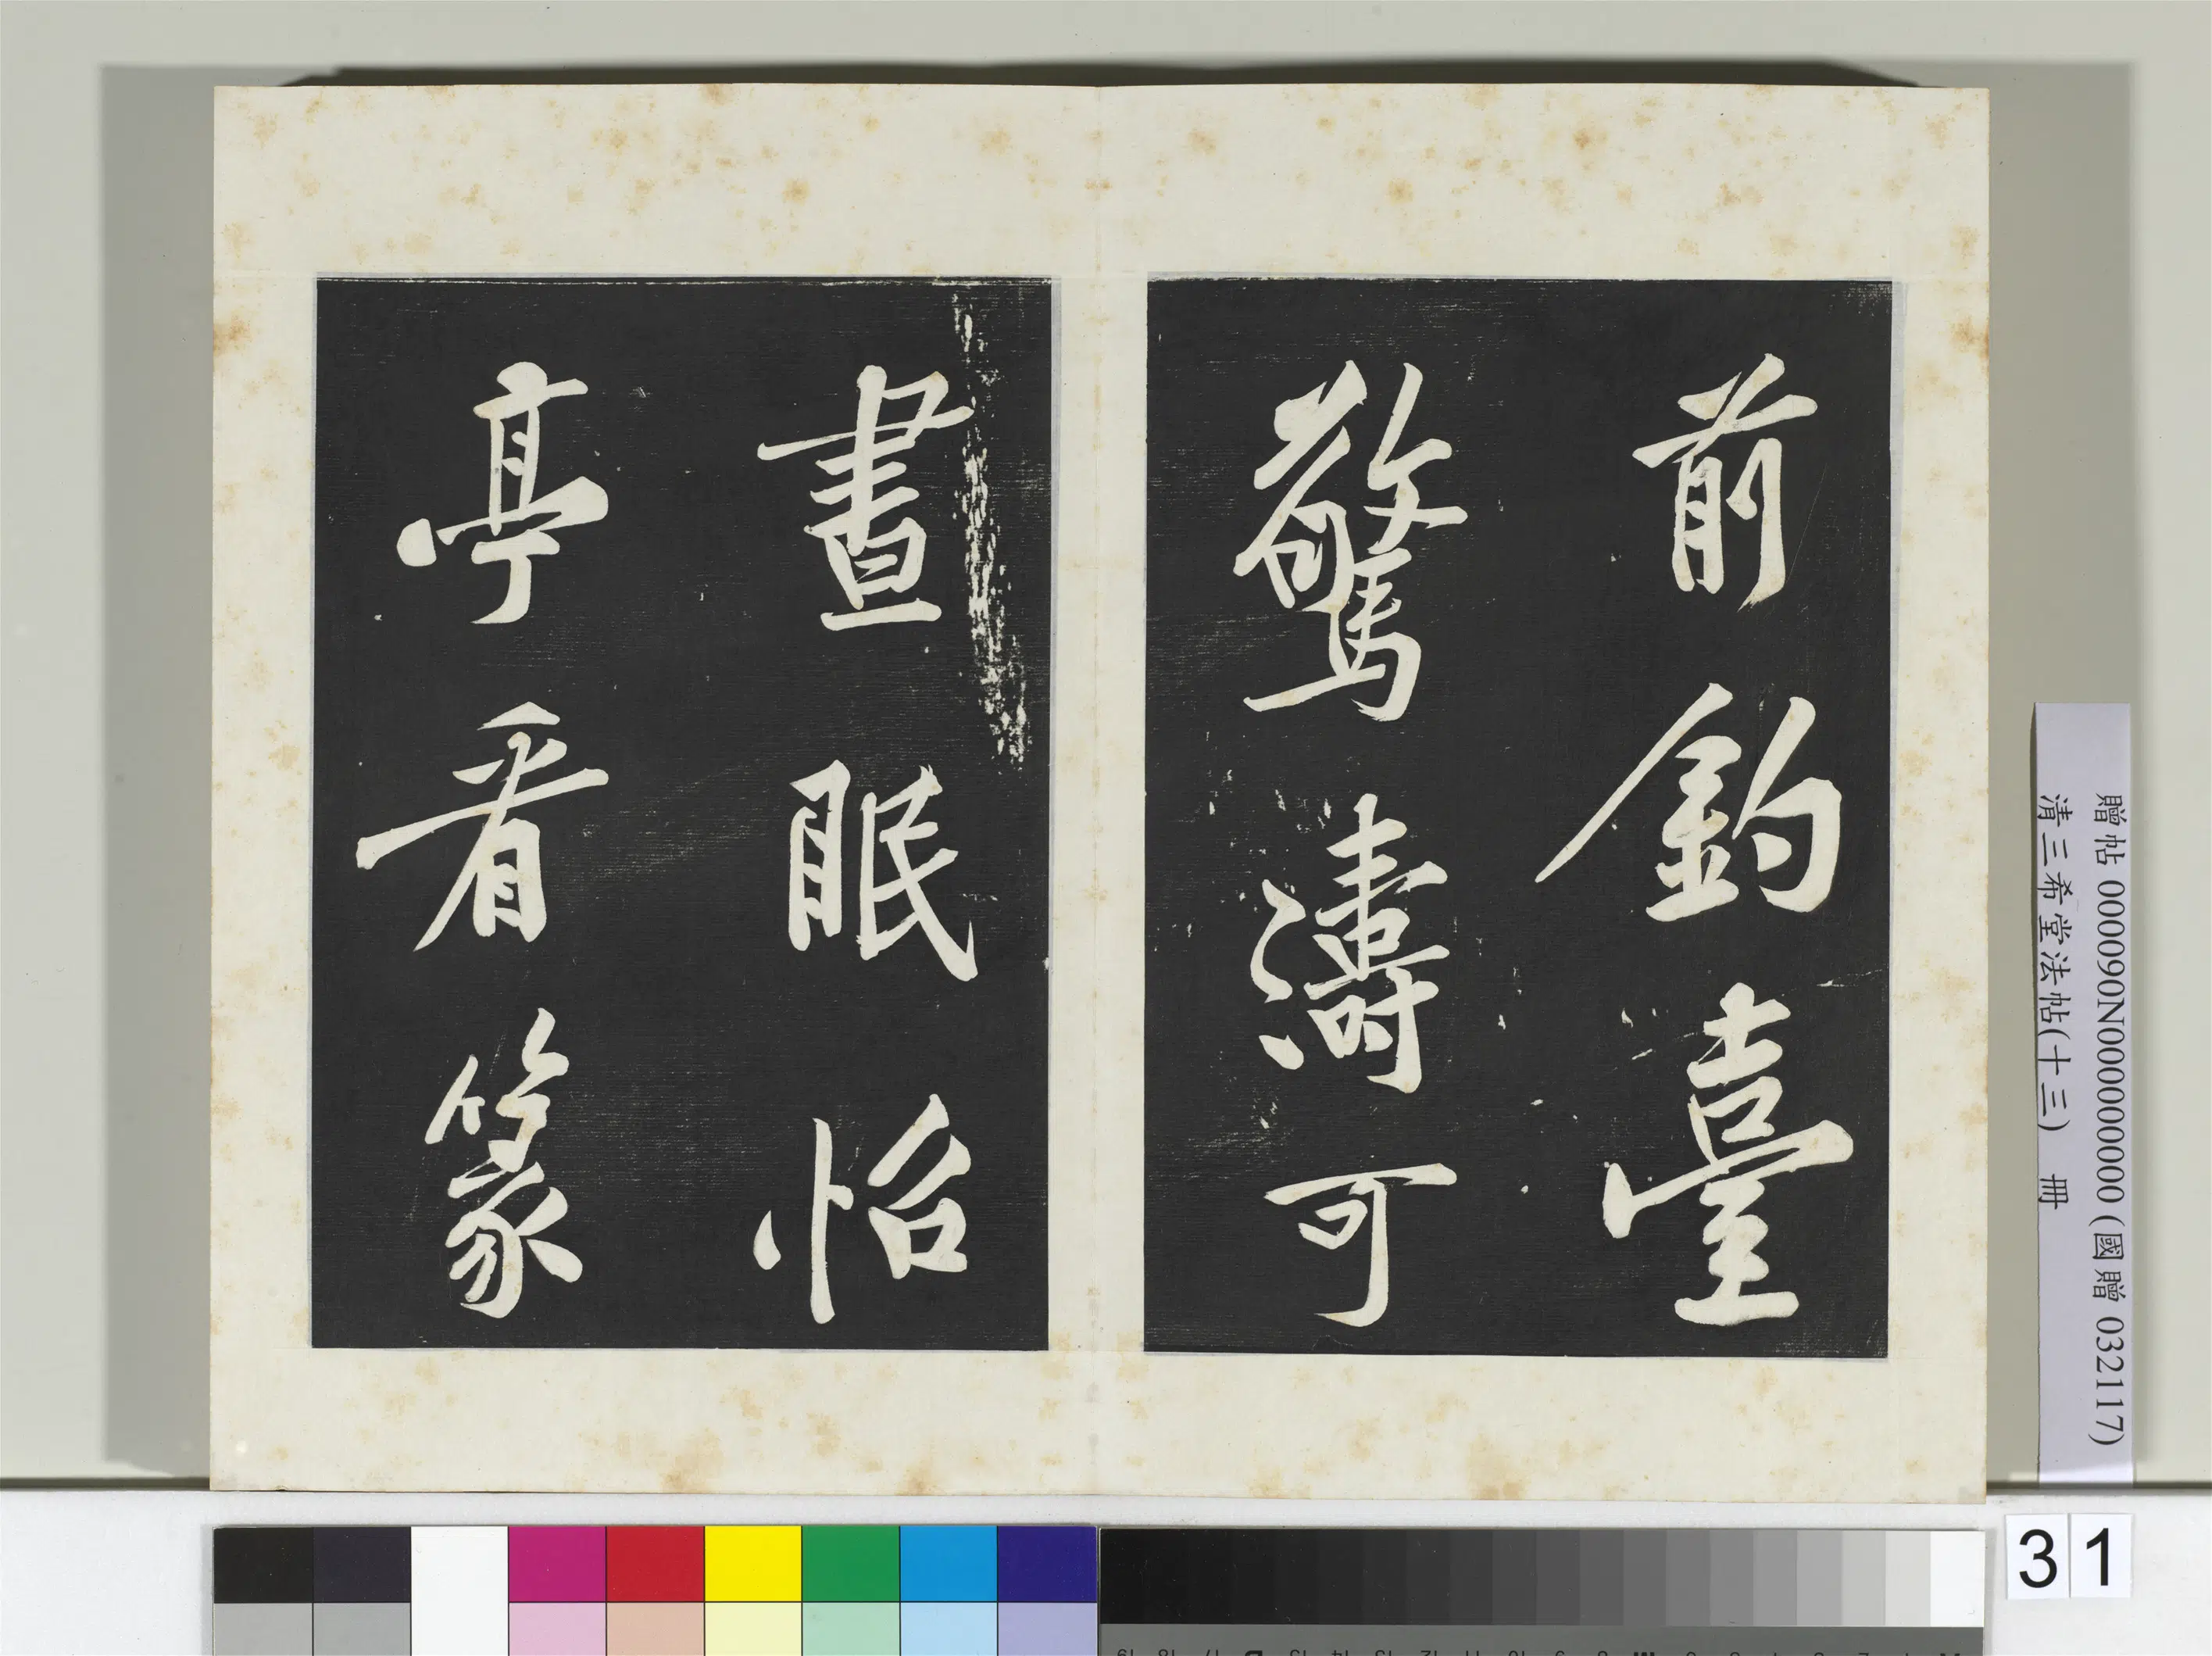 前釣臺
驚濤可
晝眠怡
亭看篆
贈帖 000090N000000000 (國贈 032117)
清三希堂法帖(十三) 冊
31